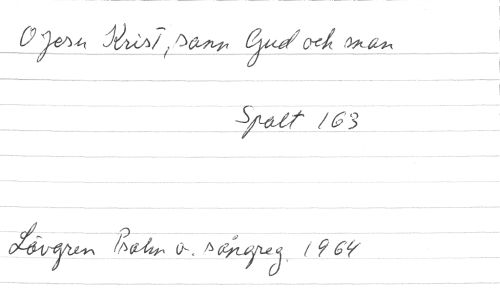 O Jesu Krist, sann Gud och man
Spalt 163
Lövgren Psalm o. sångreg. 1964